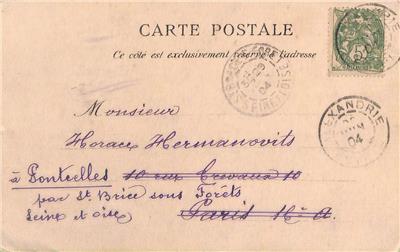 CARTE POSTALE
Ce côté est exclusivement réservé à l'adresse
5
ALEXANDRIE
04
Monsieur
Horace Hermanovits
à Pontcelles 10 rue Trevana 10
par St. Brice sous Forêts
Seine et Oise Paris